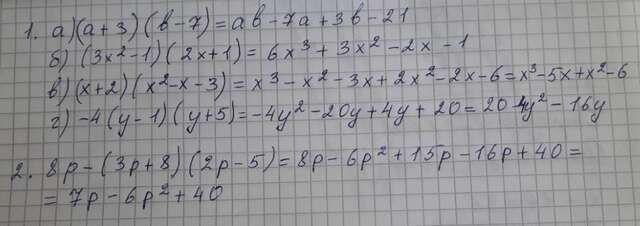 1. а) (a + 3) (b - 7) = ab - 7a + 3b - 21
б) (3x² - 1) (2x + 1) = 6x³ + 3x² - 2x - 1
в) (x + 2) (x² - x - 3) = x³ - x² - 3x + 2x² - 2x - 6 = x³ - 5x + x² - 6
г) -4 (y - 1) (y + 5) = -4y² - 20y + 4y + 20 = 20 - 4y² - 16y
2. 8p - (3p + 8) (2p - 5) = 8p - 6p² + 15p - 16p + 40 =
= 7p - 6p² + 40